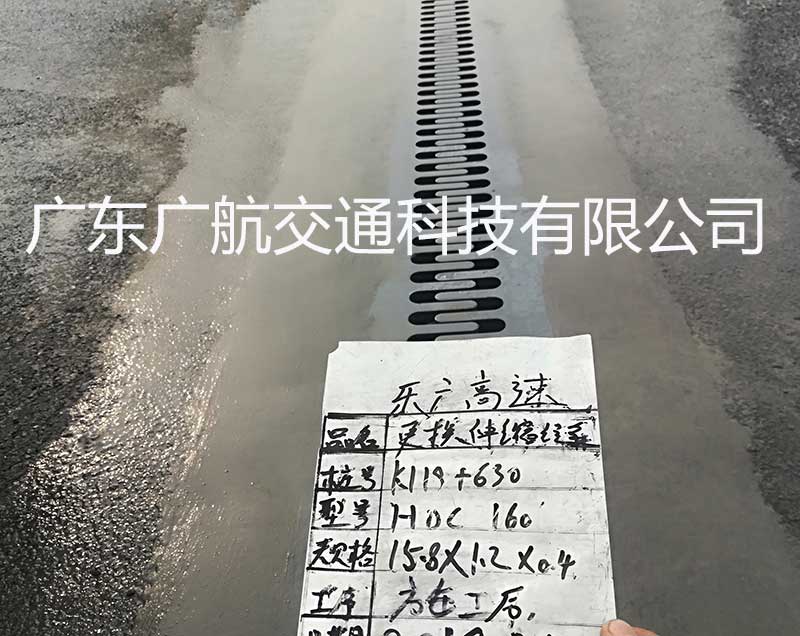 广东广航交通科技有限公司
乐广高速
品名 更换伸缩缝
桩号 K119+630
型号 HDC 160
规格 15.8X1.2X0.4
工序 施工后.